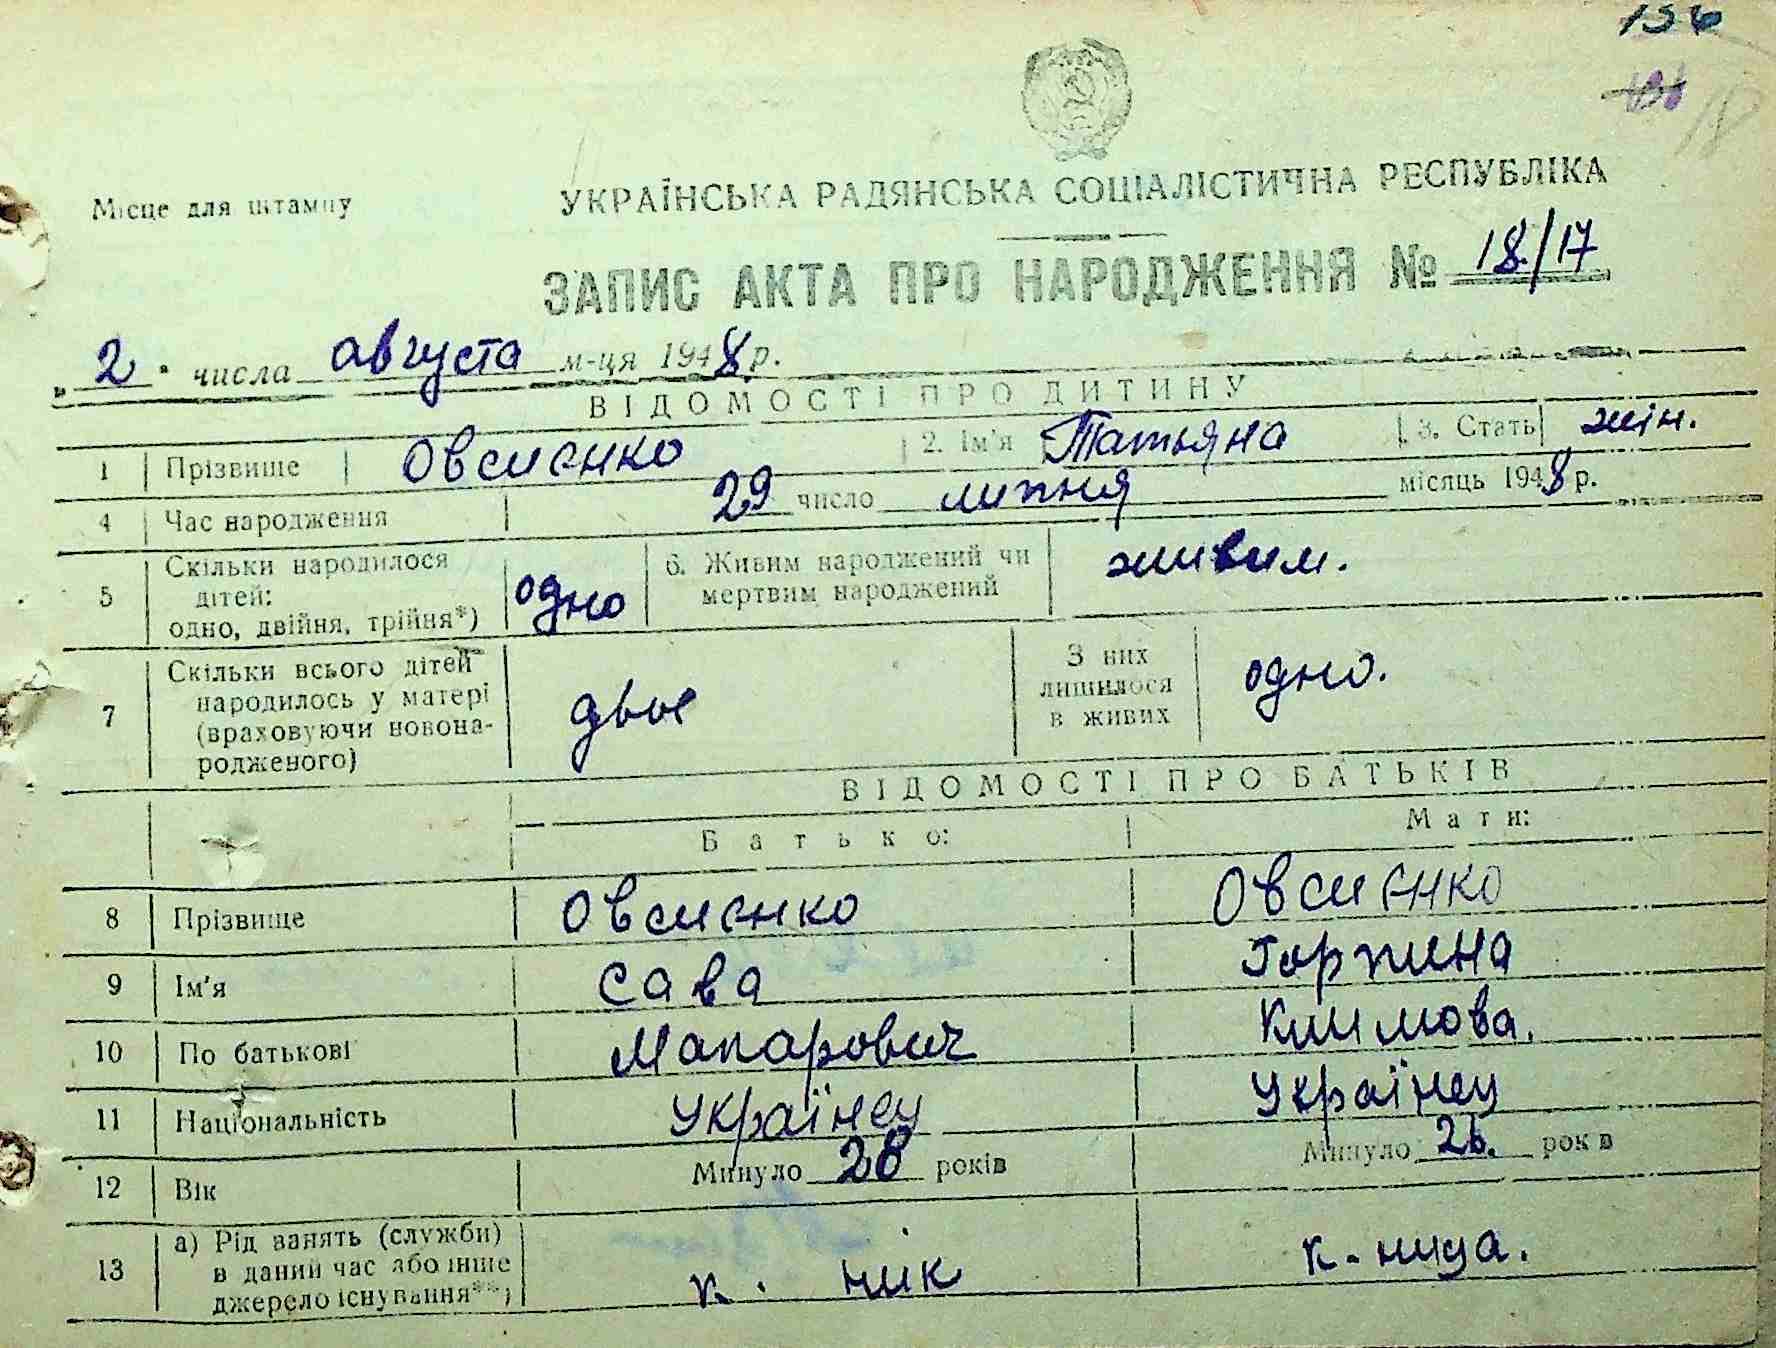 156
Місце для штампу
УКРАЇНСЬКА РАДЯНСЬКА СОЦІАЛІСТИЧНА РЕСПУБЛІКА
ЗАПИС АКТА ПРО НАРОДЖЕННЯ № 18/17
„2" числа августа м-ця 1948 р.
ВІДОМОСТІ ПРО ДИТИНУ
1 Прізвище Овсиенко 2. Ім'я Татьяна 3. Стать жін.
4 Час народження 29 число липня місяць 1948 р.
5 Скільки народилося дітей: одно, двійня, трійня*) одно 6. Живим народжений чи мертвим народжений живим.
7 Скільки всього дітей народилось у матері (враховуючи новонародженого) двое З них лишилося в живих одно.
ВІДОМОСТІ ПРО БАТЬКІВ
Батько: Мати:
8 Прізвище Овсиенко Овсиенко
9 Ім'я Сава Горпина
10 По батькові Макарович Климова.
11 Національність Українец Українец
12 Вік Минуло 28 років Минуло 26. років
13 а) Рід занять (служби) в даний час або інше джерело існування**) к. ник к-ница.